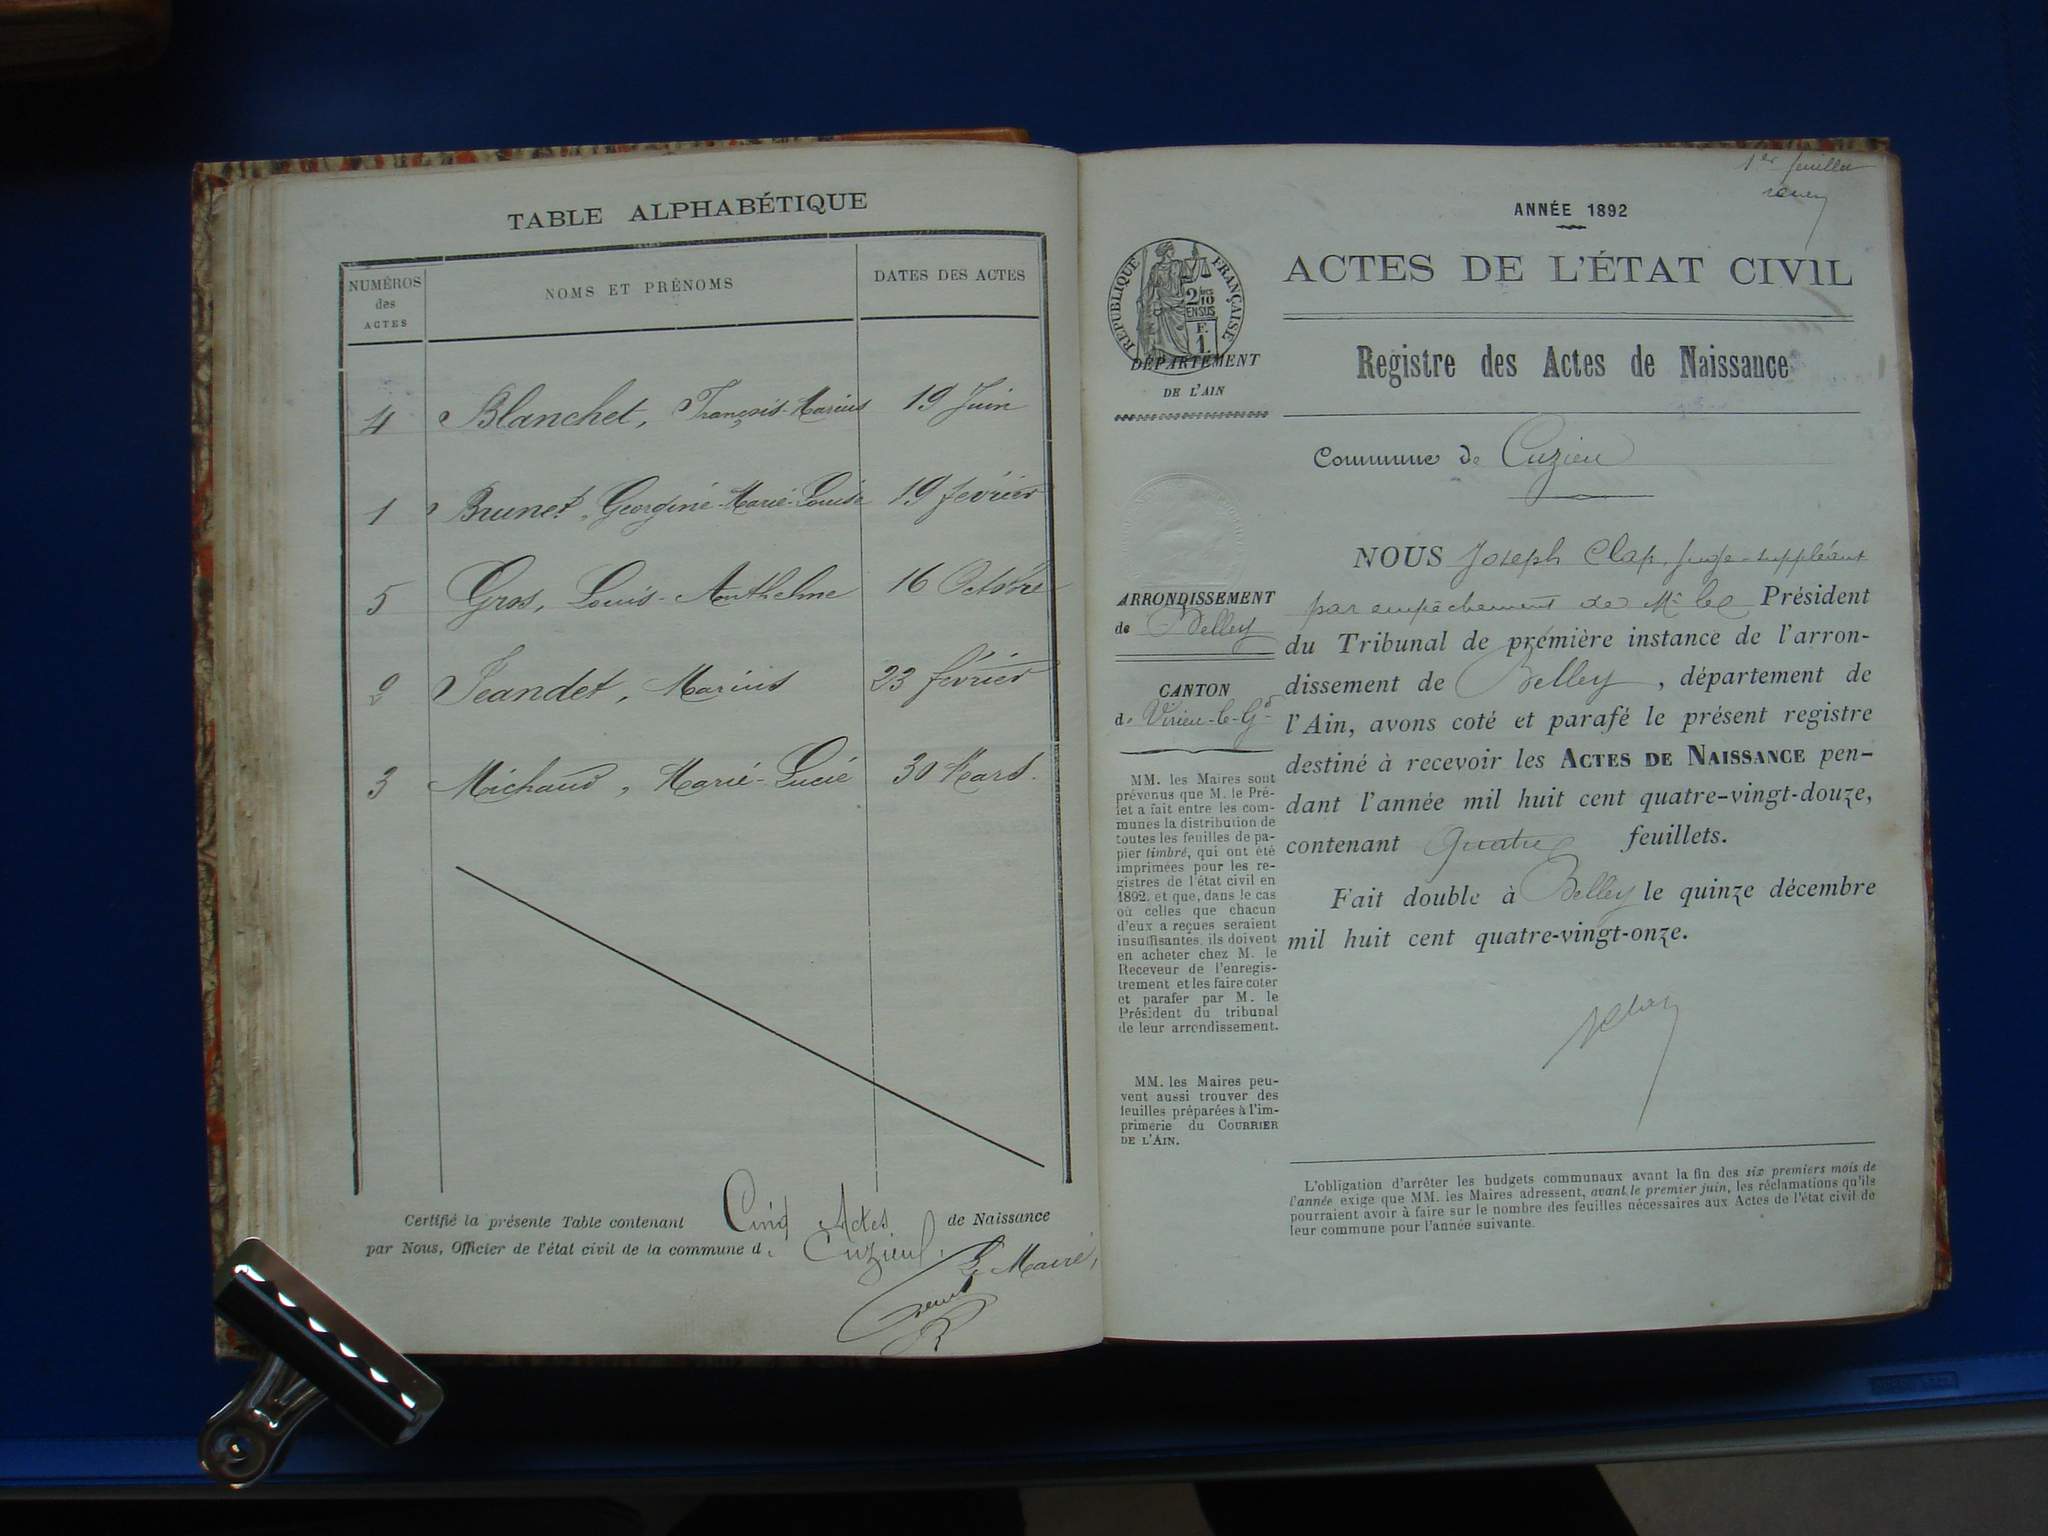 TABLE ALPHABÉTIQUE
NUMÉROS des ACTES
NOMS ET PRÉNOMS
DATES DES ACTES
4 Blanchet, François-Marius 19 Juin
1 Brunet, Georgine-Marie-Louise 19 février
5 Gros, Louis-Anthelme 16 Octobre
2 Jeandet, Marius 23 février
3 Michaud, Marie-Lucie 30 Mars.
Certifié la présente Table contenant Cinq Actes de Naissance
par Nous, Officier de l'état civil de la commune d. Cuzieu.
Le Maire,
1er feuillet
ANNÉE 1892
RÉPUBLIQUE FRANÇAISE
2 10
EN SUS
F.
1.
DÉPARTEMENT
DE L'AIN
ACTES DE L'ÉTAT CIVIL
Registre des Actes de Naissance
Commune de Cuzieu
ARRONDISSEMENT
de Belley
CANTON
de Virieu-le-Gd
MM. les Maires sont
prévenus que M. le Pré-
fet a fait entre les com-
munes la distribution de
toutes les feuilles de pa-
pier timbré, qui ont été
imprimées pour les re-
gistres de l'état civil en
1892, et que, dans le cas
où celles que chacun
d'eux a reçues seraient
insuffisantes, ils doivent
en acheter chez M. le
Receveur de l'enregis-
trement et les faire coter
et parafer par M. le
Président du tribunal
de leur arrondissement.
MM. les Maires peu-
vent aussi trouver des
feuilles préparées à l'im-
primerie du COURRIER
DE L'AIN.
NOUS Joseph Clap, Juge-suppléant
par empêchement de Mr le Président
du Tribunal de première instance de l'arron-
dissement de Belley, département de
l'Ain, avons coté et parafé le présent registre
destiné à recevoir les ACTES DE NAISSANCE pen-
dant l'année mil huit cent quatre-vingt-douze,
contenant quatre feuillets.
Fait double à Belley le quinze décembre
mil huit cent quatre-vingt-onze.
L'obligation d'arrêter les budgets communaux avant la fin des six premiers mois de
l'année exige que MM. les Maires adressent, avant le premier juin, les réclamations qu'ils
pourraient avoir à faire sur le nombre des feuilles nécessaires aux Actes de l'état civil de
leur commune pour l'année suivante.